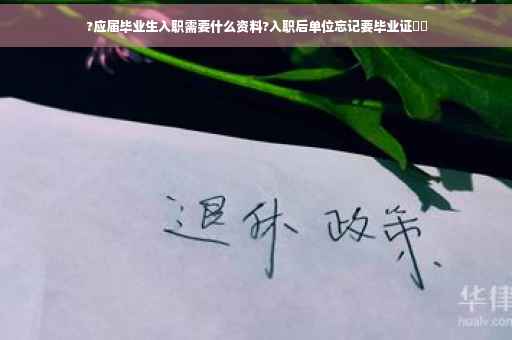 ?应届毕业生入职需要什么资料?入职后单位忘记要毕业证
退休 政策
华律
hualv.com